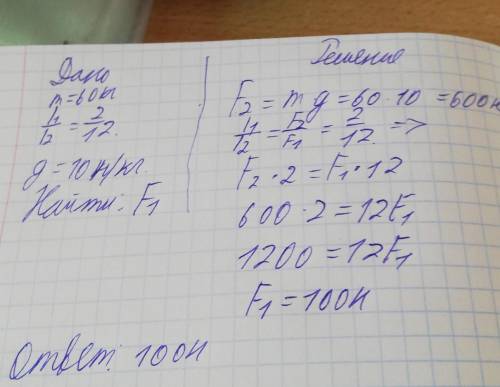 Дано
m=60кг
l₁/l₂ = 2/12.
g=10н/кг.
Найти: F₁
Решение
F₂ = mg = 60·10 = 600н
l₁/l₂ = F₂/F₁ = 2/12. =>
F₂·2 = F₁·12
600·2 = 12F₁
1200 = 12F₁
F₁ = 100н
Ответ: 100н